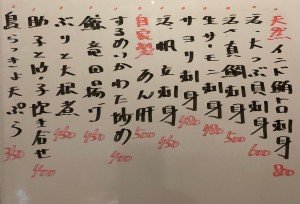 天然インド鮪トロ刺身 800
活・大つぶ貝刺身 600
活・真鯛刺身 500
生サーモン刺身 480
活・帆立刺身 480
自家製 あん肝 500
するめいかわた炒め 450
鯨竜田揚げ 450
ぶりと大根煮 450
助子と竹子炊き合せ 400
島らっきょ天ぷら 380